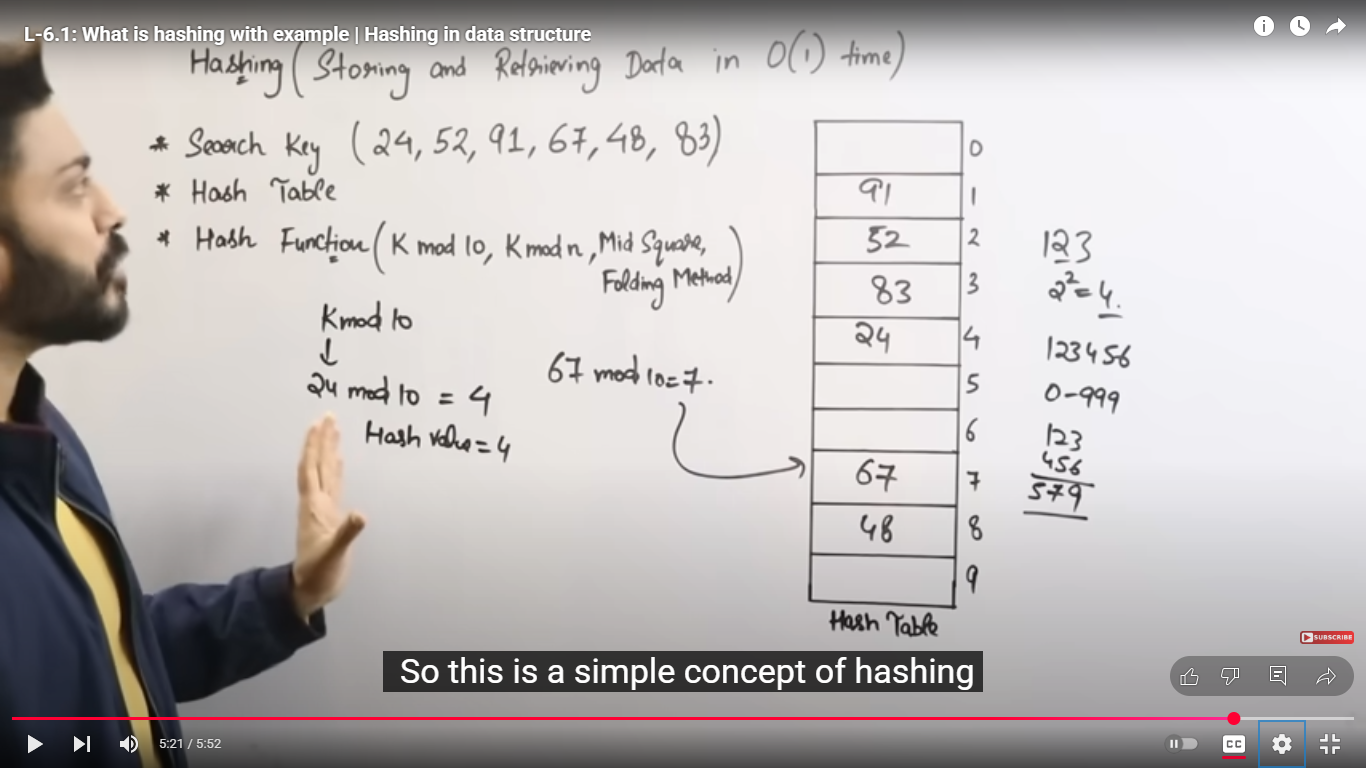 L-6.1: What is hashing with example | Hashing in data structure
Hashing (Storing and Retrieving Data in O(1) time)
* Search Key (24, 52, 91, 67, 48, 83)
* Hash Table
* Hash Function (K mod 10, K mod n, Mid Square,
Folding Method)
K mod 10
↓
24 mod 10 = 4
Hash value = 4
67 mod 10 = 7.
0
91 1
52 2
83 3
24 4
5
6
67 7
48 8
9
Hash Table
123
2² = 4.
123456
0-999
123
456
579
SUBSCRIBE
So this is a simple concept of hashing
5:21 / 5:52
CC